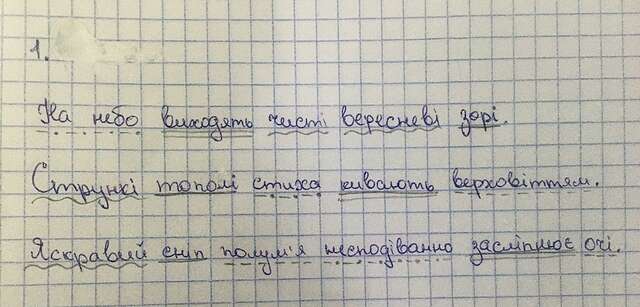 1.
На небо виходять чисті вересневі зорі.
Стрункі тополі стиха кивають верховіттям.
Яскравий сніп полум'я несподіванно засліплює очі.